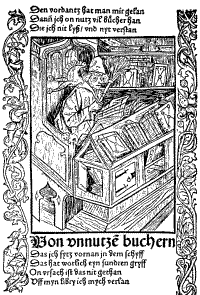 Den vordantz hat man mir gelan
Dann jch on nutz vil bůcher han
Die jch nit lyß / vnd nyt verstan
Von vnnutzē buchern
Das jch sytz vornan jn dem schyff
Das hat worlich eyn sundren gryff
On vrsach ist das nit gethan
Vff myn libry ich mych verlan